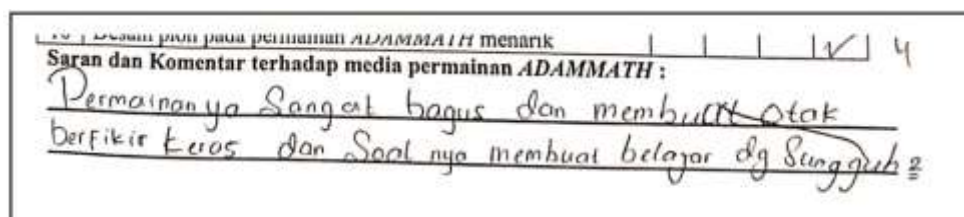 10 Desain pion pada permainan ADAMMATH menarik ✓ 4
Saran dan Komentar terhadap media permainan ADAMMATH :
Permainanya Sangat bagus dan membuat otak
berfikir keras dan Soal nya membuat belajar dg Sungguh 2